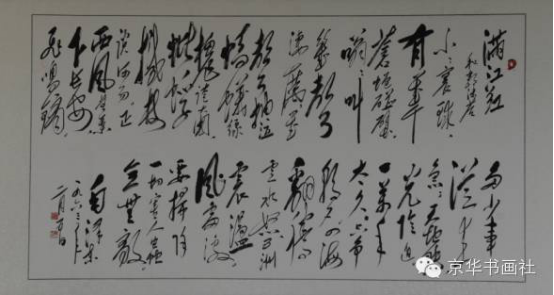 满江红
和郭沫若
小小寰球
有
苍蝇碰壁
嗡嗡叫
几声
凄厉 几
声抽泣
蚂蚁缘
槐夸大国
蚍蜉
撼树
谈何易 正
西风落叶
下长安
飞鸣镝
多少事
从来
急 天地转
光阴迫
一万年
太久 只争
朝夕 四海
翻腾
云水怒 五洲
震荡
风雷激
要扫除
一切害人虫
全无敌
毛泽东
一九六三年
二月五日
京华书画社